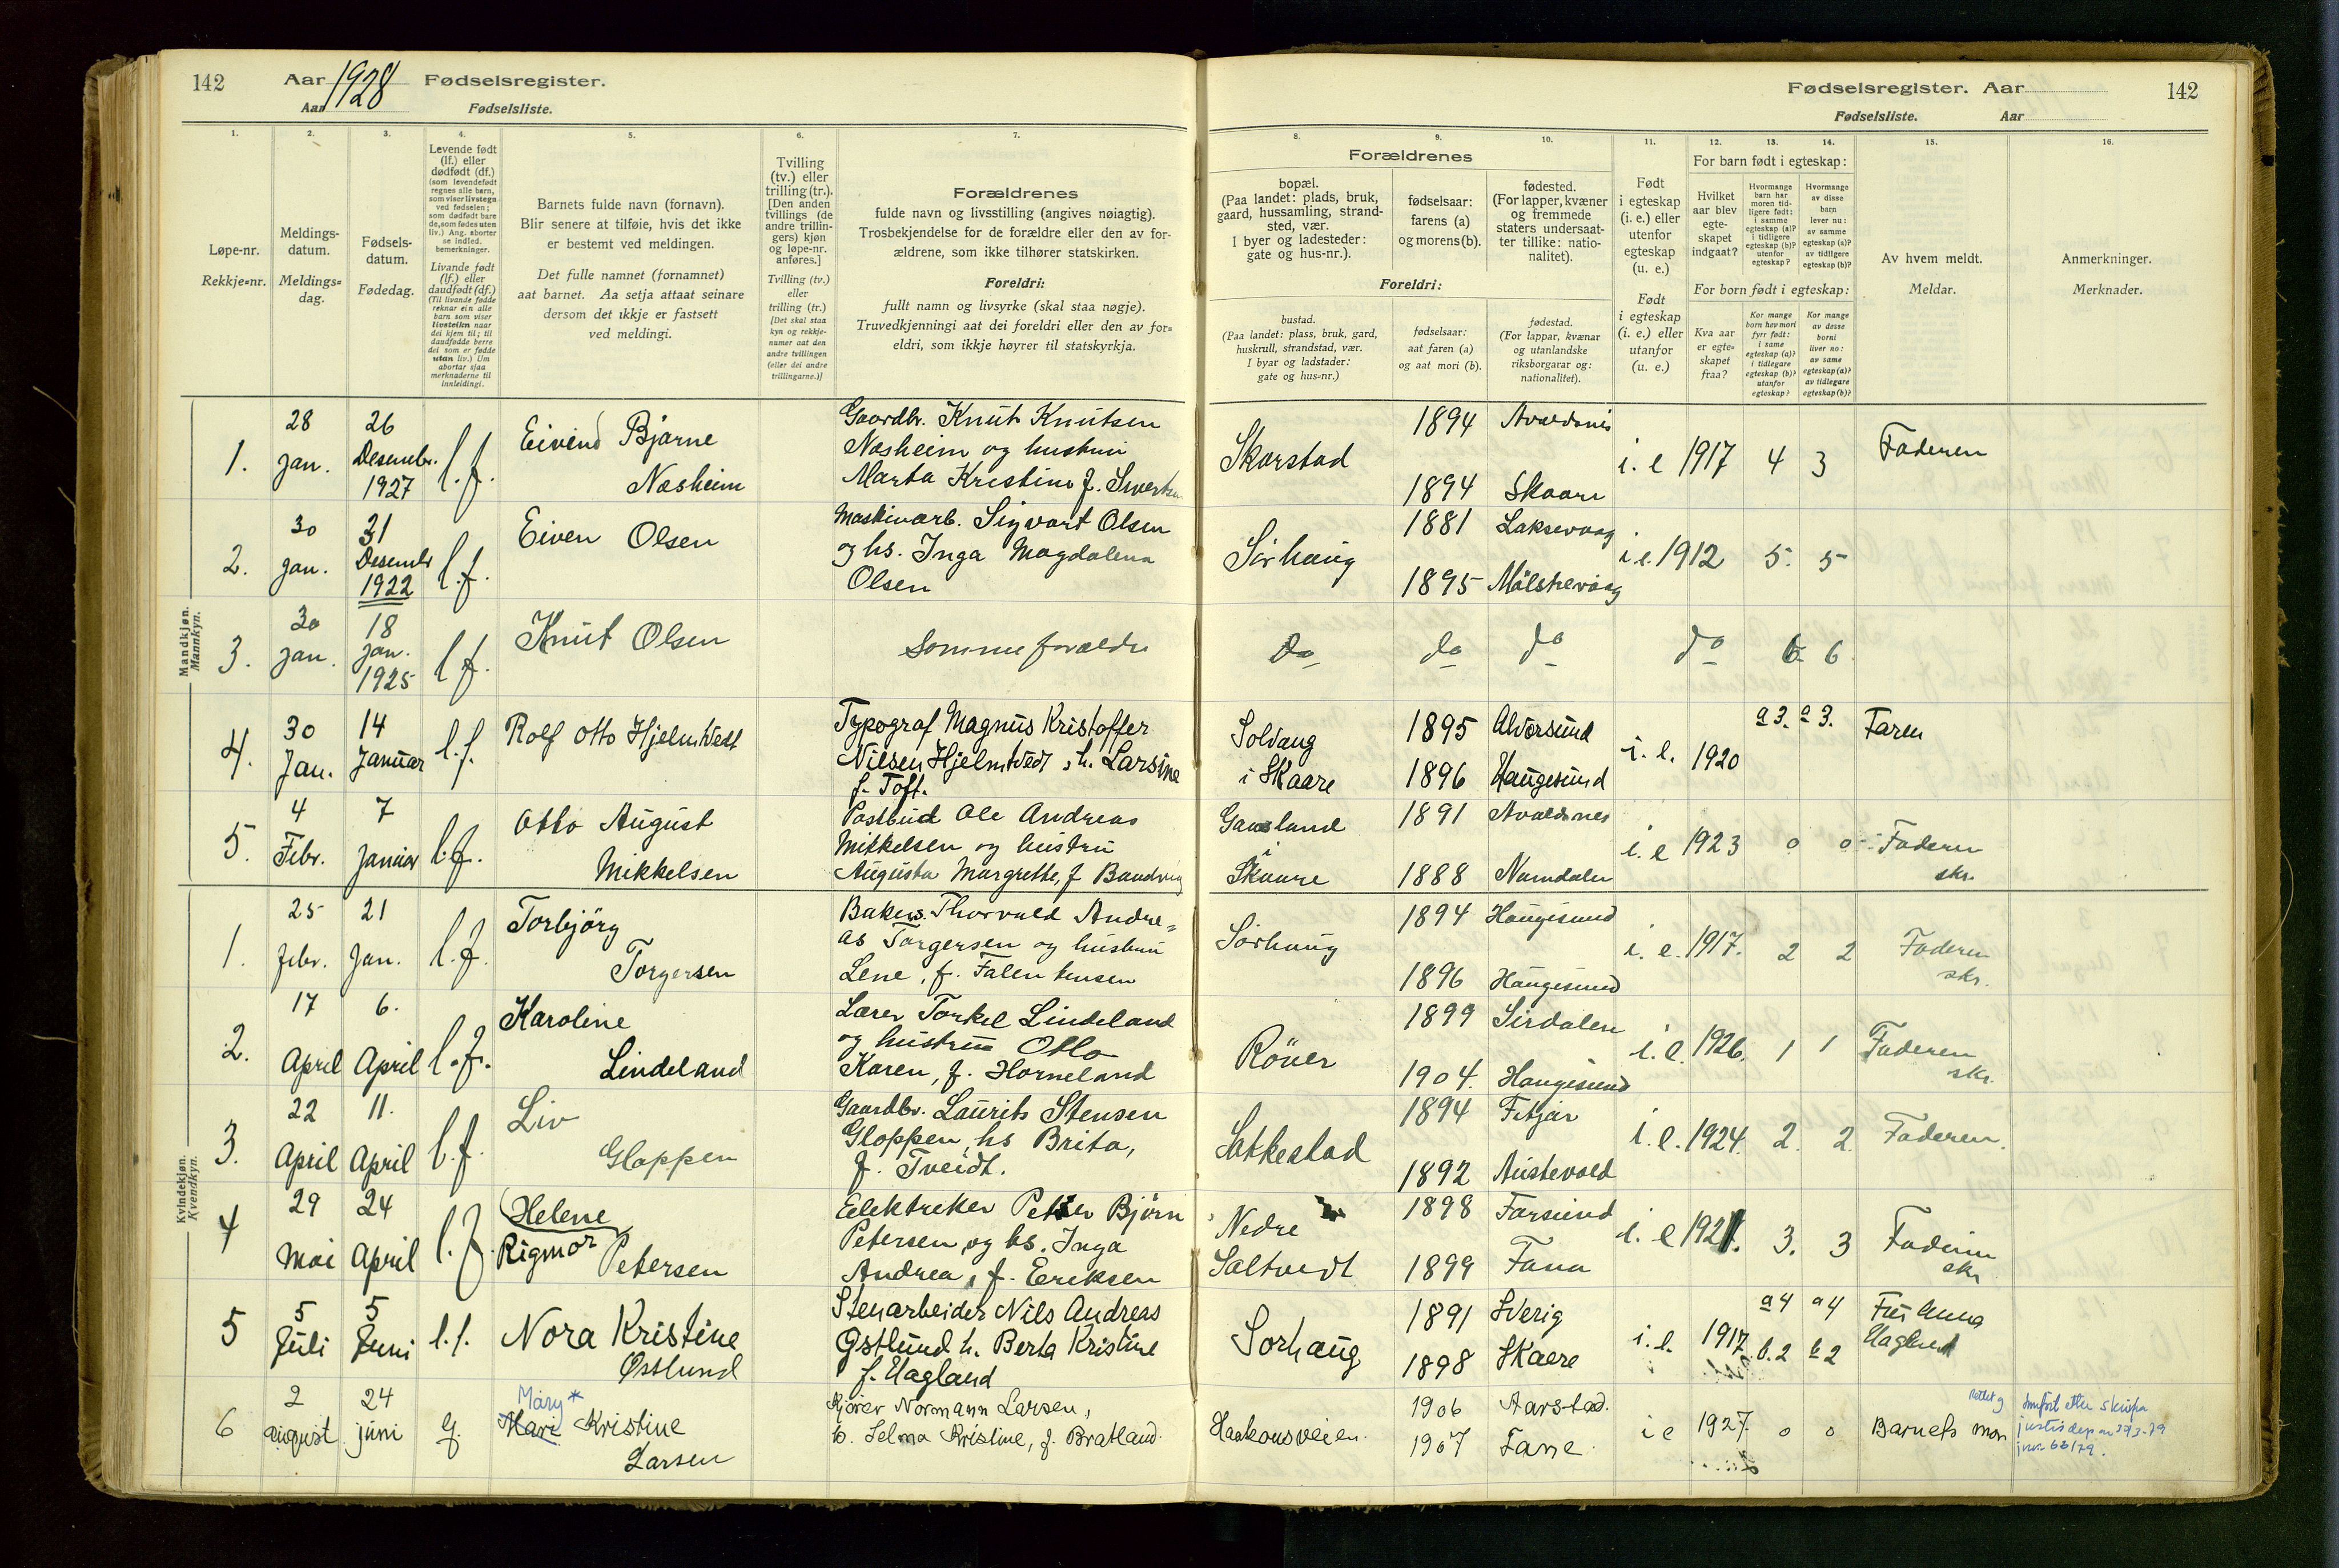 142 Aar 1928 Fødselsregister.
Aar Fødselsliste.
Fødselsregister. Aar 142
Fødselsliste. Aar
1. 2. 3. 4. 5. 6. 7. 8. 9. 10. 11. 12. 13. 14. 15. 16.
Løpe-nr.
Rekkje=nr.
Meldings-
datum.
Meldings=
dag.
Fødsels-
datum.
Fødedag.
Levende født
(lf.) eller
dødfødt (df.)
(som levendefødt
regnes alle barn,
som viser livstegn
ved fødselen;
som dødfødt bare
de, som fødes uten
liv.) Ang. aborter
se indled.
bemerkninger.
Livande født
(lf.) eller
daudfødt (df.)
(Til livande fødde
reknar ein alle
barn som viser
livsteikn naar
dei kjem til; til
daudfødde berre
dei som er fødde
utan liv.) Um
abortar sjaa
merknaderne til
innleidingi.
Barnets fulde navn (fornavn).
Blir senere at tilføie, hvis det ikke
er bestemt ved meldingen.
Det fulle namnet (fornamnet)
aat barnet. Aa setja attaat seinare
dersom det ikkje er fastsett
ved meldingi.
Tvilling
(tv.) eller
trilling (tr.).
[Den anden
tvillings (de
andre trillin-
gers) kjøn
og løpe-nr.
anføres.]
Tvilling (tv.)
eller
trilling (tr.)
[Det skal staa
kyn og rekkje-
numer aat den
andre tvillingen
(eller dei andre
trillingarne.)]
Forældrenes
fulde navn og livsstilling (angives nøiagtig).
Trosbekjendelse for de forældre eller den av for-
ældrene, som ikke tilhører statskirken.
Foreldri:
fullt namn og livsyrke (skal staa nøgje).
Truvedkjenningi aat dei foreldri eller den av for=
eldri, som ikkje høyrer til statskyrkja.
Forældrenes
bopæl.
(Paa landet: plads, bruk,
gaard, hussamling, strand-
sted, vær.
I byer og ladesteder:
gate og hus-nr.).
fødselsaar:
farens (a)
og morens (b).
fødested.
(For lapper, kvæner
og fremmede
staters undersaat-
ter tillike: natio-
nalitet).
Foreldri:
bustad.
(Paa landet: plass, bruk, gard,
huskrull, strandstad, vær.
I byar og ladstader:
gate og hus=nr.)
fødselsaar:
aat faren (a)
og aat mori (b).
fødestad.
(For lappar, kvænar
og utanlandske
riksborgarar og:
nationalitet).
Født
i egteskap
(i. e.) eller
utenfor
egteskap
(u. e.)
Født
i egteskap
(i. e.) eller
utanfor
(u. e.)
For barn født i egteskap:
Hvilket
aar blev
egte-
skapet
indgaat?
Hvormange
barn har
moren tid-
ligere født:
i samme
egteskap (a)?
i tidligere
egteskap (b)?
utenfor
egteskap?
Hvormange
av disse
barn
lever nu:
av samme
egteskap (a)?
av tidligere
egteskap (b)?
For born født i egteskap:
Kva aar
er egte=
skapet
fraa?
Kor mange
born hev mori
fyrr født:
i same
egteskap (a)?
i tidlegare
egteskap (b)?
utanfor
egteskap?
Kor mange
av desse
borni
liver no:
av same
egteskap (a)?
av tidlegare
egteskap (b)?
Av hvem meldt.
Meldar.
Anmerkninger.
Merknader.
Mandkjøn.
Mannkyn.
1. 28 Jan. 26 Desembr. 1927 l.f. Eivind Bjarne Nasheim
Gaardbr. Knut Knutsen
Nasheim og hustru
Marta Kristine f. Sivertsen
Skarstad 1894 Avaldsnes 1894 Skaare i.e 1917 4 3 Faderen
2. 30 Jan. 31 Desembr 1922 l.f. Eiven Olsen
Maskinarb. Sigvart Olsen
og hs. Inga Magdalena
Olsen
Sörhaug 1881 Laksevaag 1895 i.e. 1912 5. 5
3. 30 Jan. 18 Jan. 1925 l.f. Knut Olsen
Samme forældre
Do do do do 6 6.
4. 30 Jan. 14 Januar l.f. Rolf Otto Hjelmtvedt
Typograf Magnus Kristoffer
Nilsen Hjelmtvedt, h. Larsine
f. Toft.
Solvang
i Skaare 1895 Alversund 1896 Haugesund i.e. 1920 a 3. a 3. Faren
5. 4 Febr. 7 Januar l.f. Otto August Mikkelsen
Postbud Ole Andreas
Mikkelsen og hustru
Augusta Margrethe, f
i
Skaare 1891 Avaldsnes 1888 Namdalen i.e 1923 0 0 Faderen
skr.
Kvindekjøn.
Kvendkyn.
1. 25 Febr. 21 Jan. l.f. Torbjörg Torgersen
Bakerm. Thorvald Andre=
as Torgersen og hustru
Lene, f. Falentinsen
Sörhaug 1894 Haugesund 1896 Haugesund i.e. 1917. 2 2 Faderen
skr.
2. 17 April 6. April l.f. Karoline Lindeland
Lærer Torkel Lindeland
og hustru Otto
Karen, f. Horneland
Röver 1899 Sirdalen 1904. Haugesund i.e. 1926. 1 1 Faderen
skr.
3. 22 April 11. April l.f. Liv Gloppen
Gaardbr. Laurits Stensen
Gloppen, hs Brita,
f. Tveidt.
Sakkestad 1894 Fitjar 1892 Austevold i.e. 1924. 2. 2. Faderen.
4 29 Mai 24 April l.f. Helene Rigmor Petersen
Elektriker Petter Björn
Petersen og hs. Inga
Andrea, f. Eriksen
Nedre
Saltvedt 1898 Farsund 1899 Fana i.e 1921. 3. 3 Faderen
skr
5 5 Juli 5 Juni l.f. Nora Kristine Østlund
Stenarbeider Nils Andreas
Østlund h. Berta Kristine
f. Hagland
Sorhaug 1891 Sverig 1898 Skaere i.e. 1917 a 4 a 4 b. 2 b 2 Fru Anna
Hagland
6 2 august 24 juni Mary* Mari Kristine Larsen
Kjörer Normann Larsen,
h. Selma Kristine, f. Bratland.
Haakonsveien. 1906 Aarstad. 1907 Fane i e 1927. 0 0 Barnets mor
Rettet og
justisdep